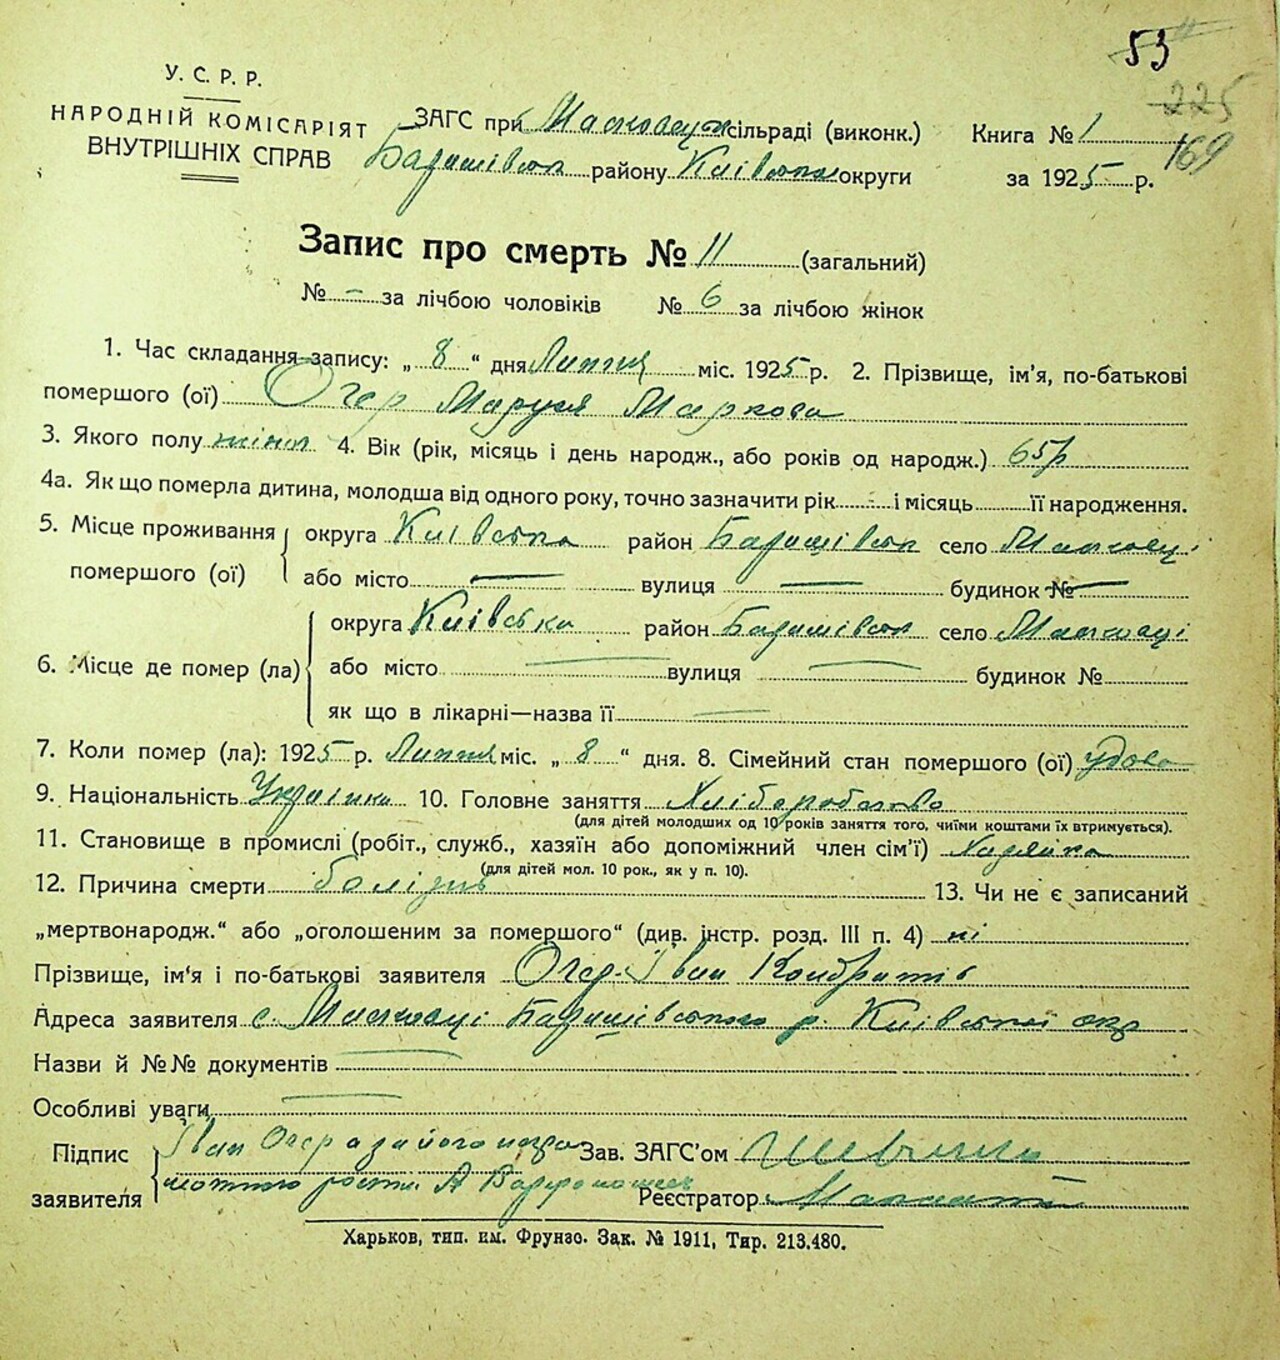 53
225
169
У. С. Р. Р.
НАРОДНІЙ КОМІСАРІЯТ
ВНУТРІШНІХ СПРАВ
ЗАГС при сільраді (виконк.)
Баришівськ району Київської округи
Книга № 1
за 1925 р.
Запис про смерть № 11 (загальний)
№ – за лічбою чоловіків № 6 за лічбою жінок
1. Час складання запису: „ 8 “ дня Липня міс. 1925 р. 2. Прізвище, ім'я, по-батькові
помершого (ої) Огер Маруся Маркова
3. Якого полу жіноч 4. Вік (рік, місяць і день народж., або років од народж.) 65 р
4а. Як що померла дитина, молодша від одного року, точно зазначити рік і місяць її народження.
5. Місце проживання помершого (ої)
округа Київська район Баришівськ село Масковці
або місто — вулиця — будинок № —
6. Місце де помер (ла)
округа Київська район Баришівськ село Масковці
або місто — вулиця — будинок №
як що в лікарні—назва її —
7. Коли помер (ла): 1925 р. Липня міс. „ 8 “ дня. 8. Сімейний стан помершого (ої) удова
9. Національність Українка 10. Головне заняття Хліборобство
(для дітей молодших од 10 років заняття того, чиїми коштами їх втримується).
11. Становище в промислі (робіт., служб., хазяїн або допоміжний член сім'ї) Хазяйка
(для дітей мол. 10 рок., як у п. 10).
12. Причина смерти болізнь 13. Чи не є записаний
„мертвонародж.“ або „оголошеним за помершого“ (див. інстр. розд. III п. 4) ні
Прізвище, ім'я і по-батькові заявителя Огер Іван Кондратів
Адреса заявителя с. Масковці Баришівського р. Київської окр
Назви й №№ документів —
Особливі уваги —
Підпис заявителя
Іван Огер а за його
А
Зав. ЗАГС'ом
Реєстратор
Харьков, тип. им. Фрунзо. Зак. № 1911, Тир. 213.480.